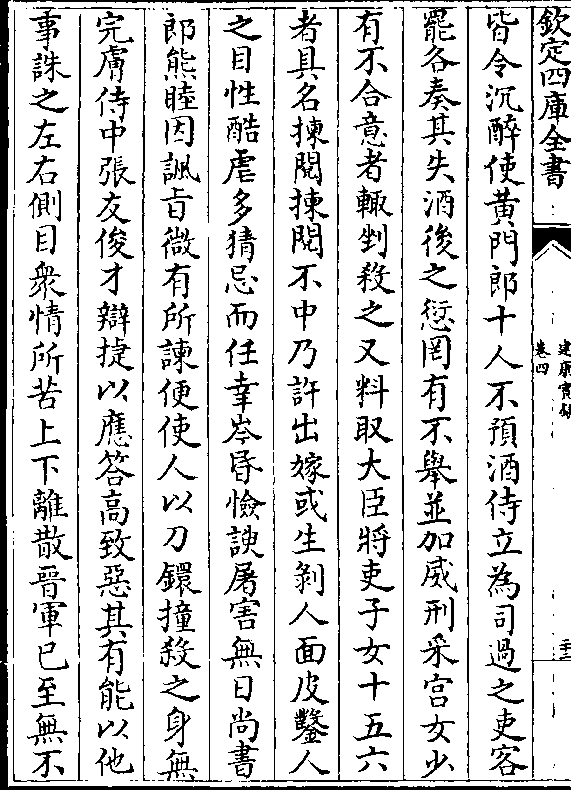 欽定四庫全書
建康實錄
卷四
二十二
皆令沉醉使黄門郎十人不預酒侍立為司過之吏客
罷各奏其失酒後之愆罔有不舉並加威刑采宫女少
有不合意者輙剉殺之又料取大臣將吏子女十五六
者具名揀閱揀閱不中乃許出嫁或生剝人面皮鑿人
之目性酷虐多猜忌而任幸岑昏憸諛屠害無日尚書
郎熊睦因諷旨微有所諫便使人以刀鐶撞殺之身無
完膚侍中張友俊才辯捷以應答高致惡其有能以他
事誅之左右側目衆情所苦上下離散晉軍已至無不